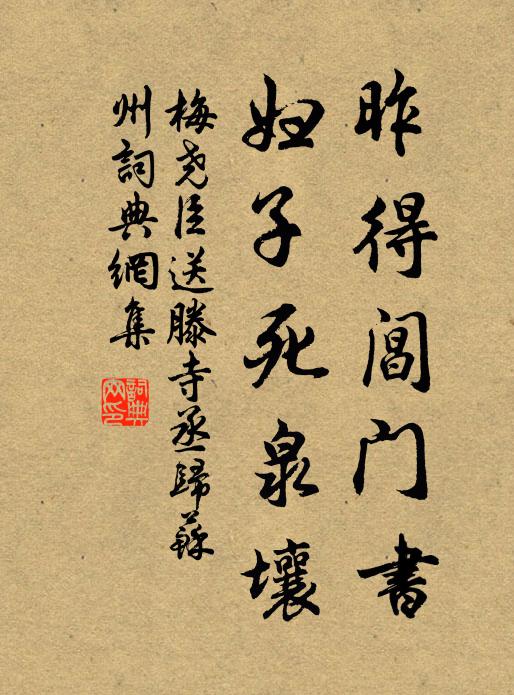 昨得閶门書
妇子死泉壤
梅尧臣送滕寺丞歸蘇
州詞典網集